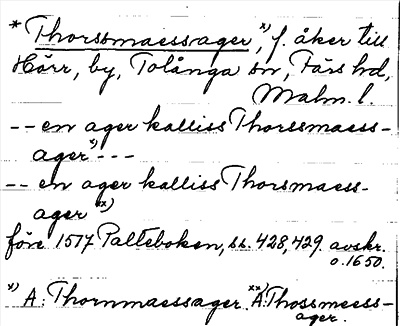 * Thorssmaessager, x) f. åker till
Hörr, by, Tolånga sn, Färs hd,
Malm. l.
-- en ager kalliss Thorssmaess-
ager x) ---
-- en ager kalliss Thorsmaess-
ager xx)
före 1517 Palteboken, ss. 428, 429. avskr.
o. 1650.
x) A: Thornmaessager. xx A: Thossmeess-
ager.